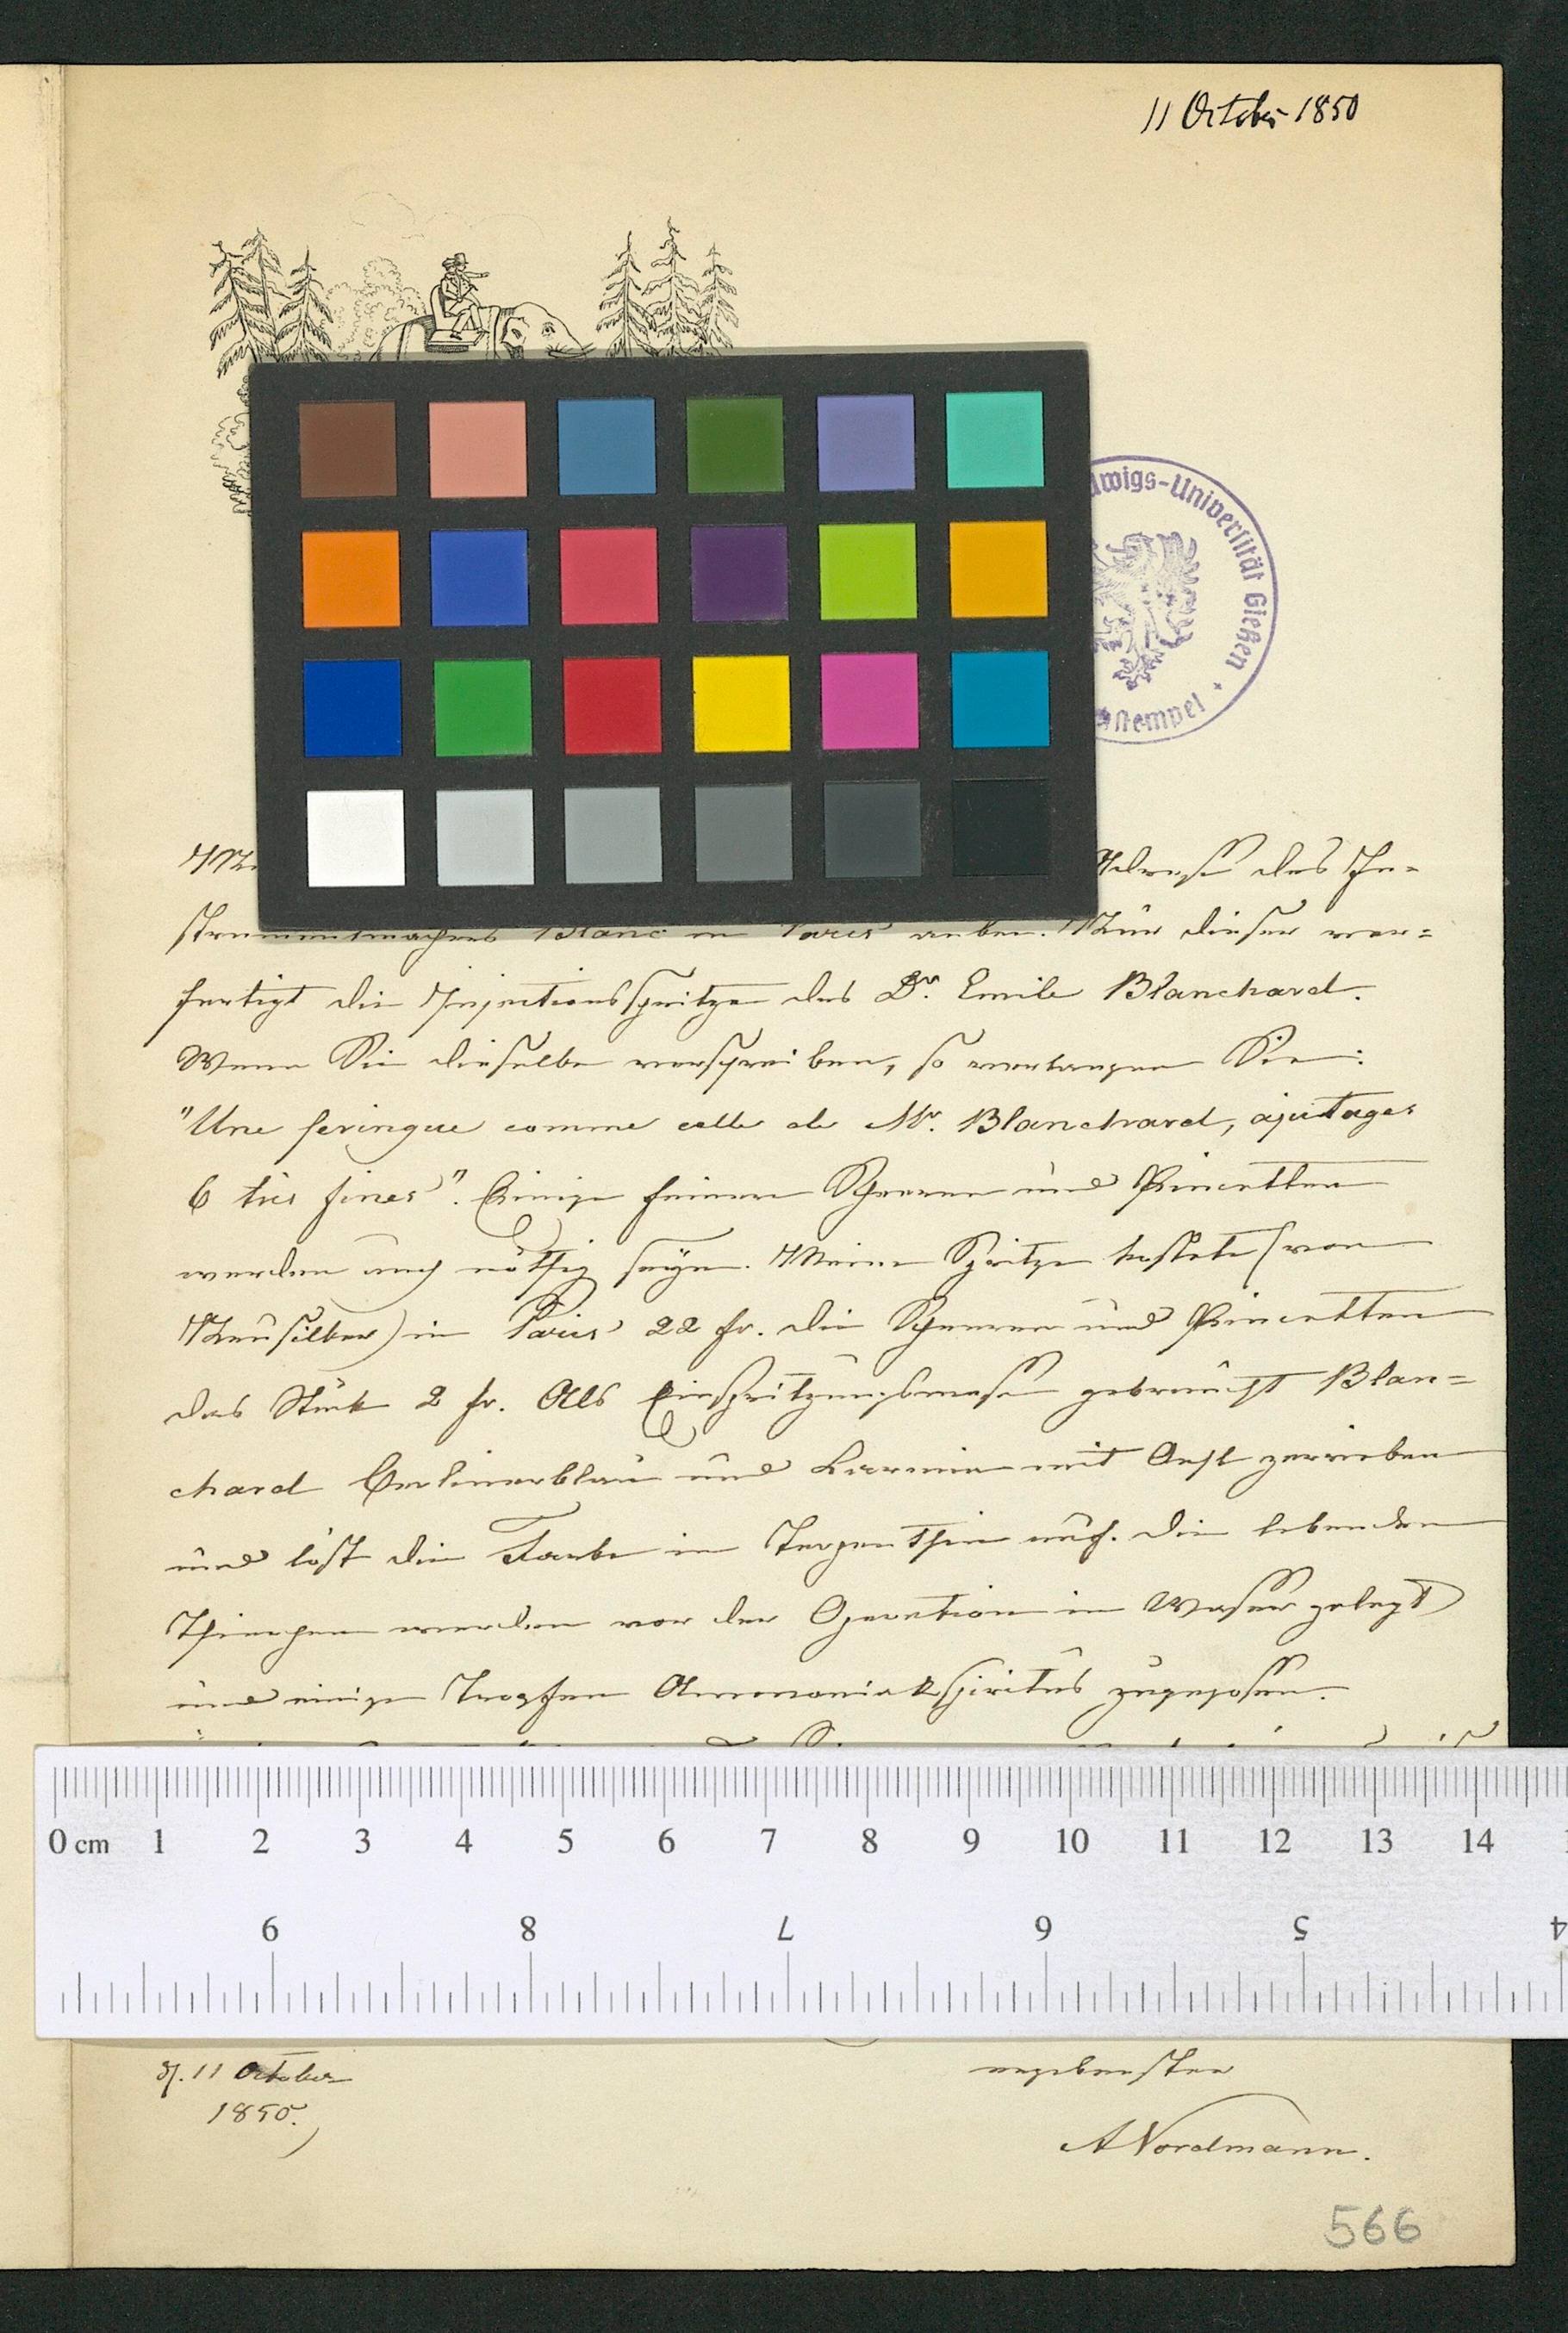 11 October 1850
dwigs-Universität Gießen
Stempel
Adresse des In-
strumentmachers Blanc in Paris anbei. Nur dieser ver=
fertigt die Injectionsspritze des Dr. Emile Blanchard.
Wenn Sie dieselbe verschreiben, so verlangen Sie:
"Une seringue comme celle de Mr. Blanchard, ajutages
6 très fines". Einige feinere Scheeren und Pincetten
werden auch nöthig seyn. Meine Spritze kostete (von
Neusilber) in Paris 22 fr. die Scheeren und Pincetten
das Stück 2 fr. Als Einspritzungsmasse gebraucht Blan=
chard Berlinerblau und Karmin mit Oehl zerrieben
und löst die Farbe in Terpenthin auf. Die lebenden
Thierchen werden vor der Operation in Wasser gelegt
und einige Tropfen Ammoniakspiritus zugegossen.
0 cm 1 2 3 4 5 6 7 8 9 10 11 12 13 14
9 8 7 6 5 4
d. 11 October
1850.
ergebenster
A Nordmann.
566